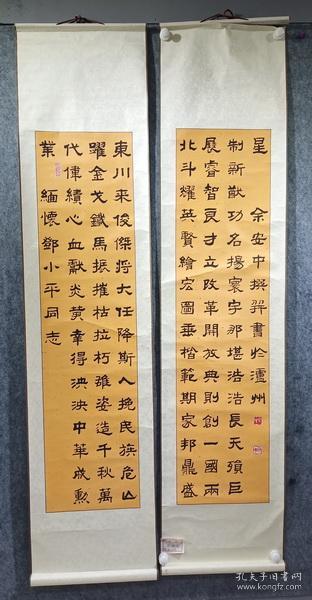 東川来俊傑将大任降斯人挽民族危亡
躍金戈鐵馬振摧枯拉朽雄姿造千秋萬
代偉績心血獻炎黄幸得泱泱中華成勳
業 緬懷鄧小平同志
北斗耀英賢繪宏圖垂楷範期家邦鼎盛
展睿智良才立改革開放典則創一國兩
制新猷功名揚寰宇那堪浩浩長天殞巨
星 余安中撰并書於瀘州
孔夫子旧书网
www.kongfz.com